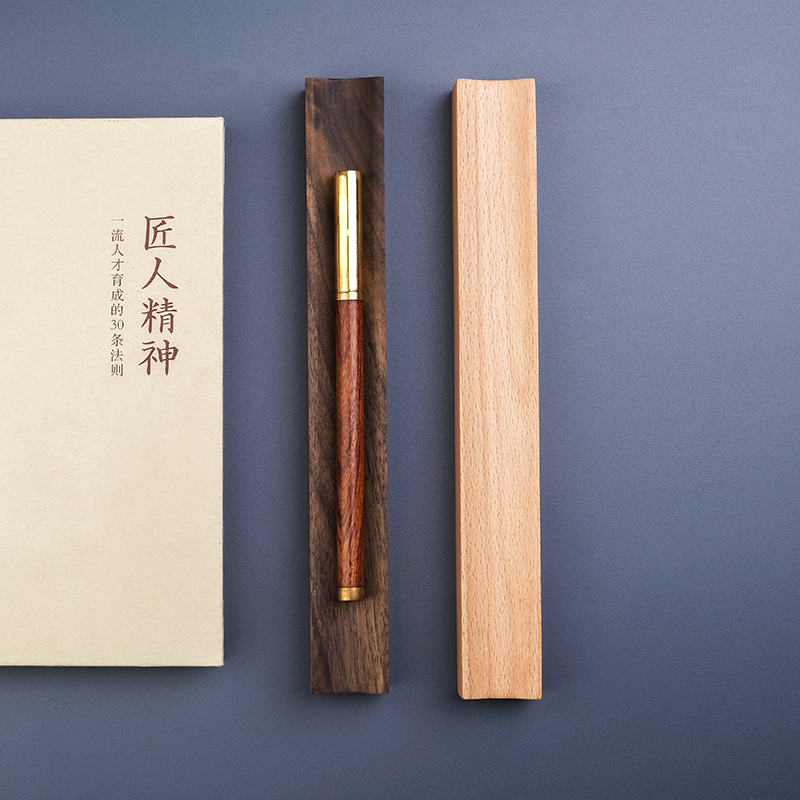 匠人精神
一流人才育成的30条法则